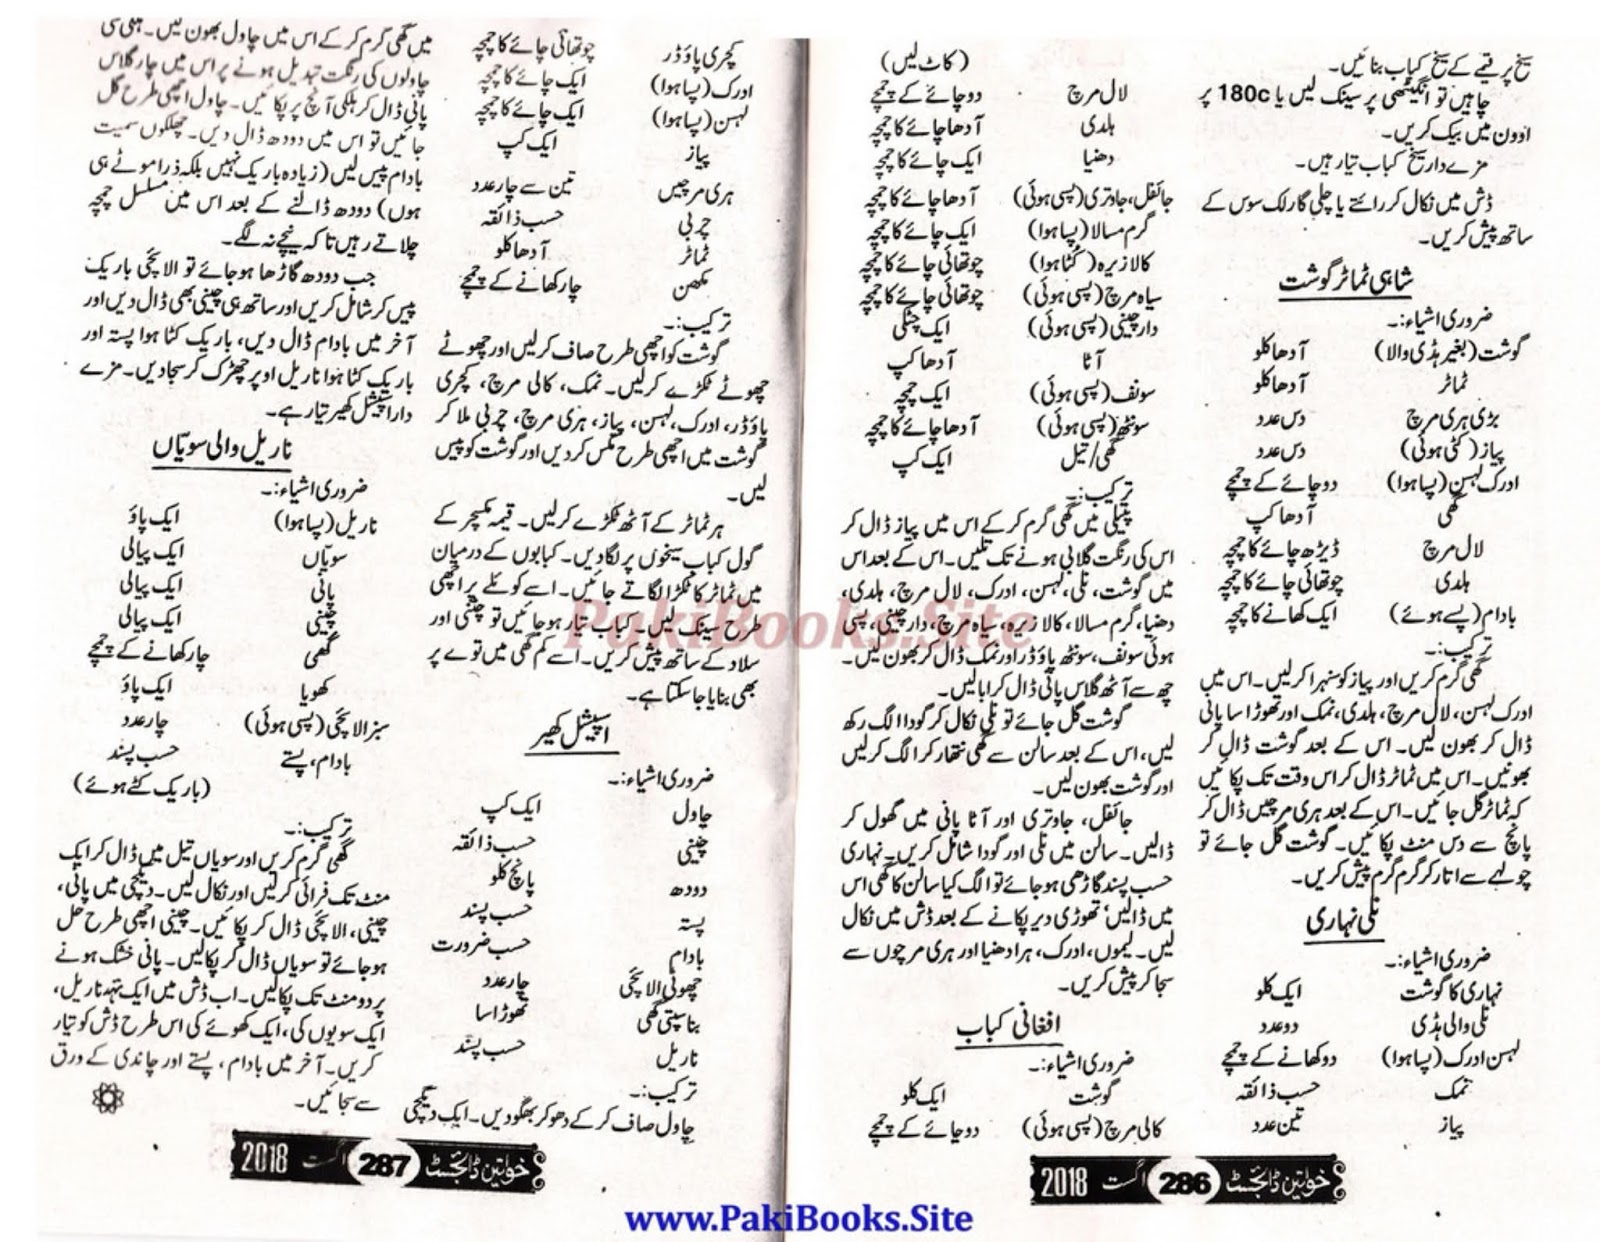 سیخ پر قیمے کے سیخ کباب بنائیں۔
چاہیں تو انگیٹھی پر سینک لیں یا 180c پر
اوون میں بیک کریں۔
مزے دار سیخ کباب تیار ہیں۔
ڈش میں نکال کر رائتے یا چلی گارلک سوس کے
ساتھ پیش کریں۔
شاہی ٹماٹر گوشت
ضروری اشیاء:۔
گوشت (بغیر ہڈی والا) آدھا کلو
ٹماٹر آدھا کلو
بڑی ہری مرچ دس عدد
پیاز (کٹی ہوئی) دس عدد
ادرک لہسن (پسا ہوا) دو چائے کے چمچے
گھی آدھا کپ
لال مرچ ڈیڑھ چائے کا چمچہ
ہلدی چوتھائی چائے کا چمچہ
بادام (پسے ہوئے) ایک کھانے کا چمچہ
ترکیب:۔
گھی گرم کریں اور پیاز کو سنہرا کرلیں۔ اس میں
ادرک لہسن، لال مرچ، ہلدی، نمک اور تھوڑا سا پانی
ڈال کر بھون لیں۔ اس کے بعد گوشت ڈال کر
بھونیں۔ اس میں ٹماٹر ڈال کر اس وقت تک پکائیں
کہ ٹماٹر گل جائیں۔ اس کے بعد ہری مرچیں ڈال کر
پانچ سے دس منٹ پکائیں۔ گوشت گل جائے تو
چولہے سے اتار کر گرم گرم پیش کریں۔
نلی نہاری
ضروری اشیاء:۔
نہاری کا گوشت ایک کلو
نلی والی ہڈی دو عدد
لہسن ادرک (پسا ہوا) دو کھانے کے چمچے
نمک حسب ذائقہ
پیاز تین عدد
(کاٹ لیں)
لال مرچ دو چائے کے چمچے
ہلدی آدھا چائے کا چمچہ
دھنیا ایک چائے کا چمچہ
جائفل، جاوتری (پسی ہوئی) آدھا چائے کا چمچہ
گرم مسالا (پسا ہوا) ایک چائے کا چمچہ
کالا زیرہ (کٹا ہوا) چوتھائی چائے کا چمچہ
سیاہ مرچ (پسی ہوئی) چوتھائی چائے کا چمچہ
دار چینی (پسی ہوئی) ایک چٹکی
آٹا آدھا کپ
سونف (پسی ہوئی) ایک چمچہ
سونٹھ (پسی ہوئی) آدھا چائے کا چمچہ
گھی/تیل ایک کپ
ترکیب:۔
پتیلی میں گھی گرم کر کے اس میں پیاز ڈال کر
اس کی رنگت گلابی ہونے تک تلیں۔ اس کے بعد اس
میں گوشت، نلی، لہسن، ادرک، لال مرچ، ہلدی،
دھنیا، گرم مسالا، کالا زیرہ، سیاہ مرچ، دار چینی، پسی
ہوئی سونف، سونٹھ پاؤڈر اور نمک ڈال کر بھون لیں۔
چھ سے آٹھ گلاس پانی ڈال کر ابالیں۔
گوشت گل جائے تو نلی نکال کر گودا الگ رکھ
لیں، اس کے بعد سالن سے گھی نتھار کر الگ کر لیں
اور گوشت بھون لیں۔
جائفل، جاوتری اور آٹا پانی میں گھول کر
ڈالیں۔ سالن میں نلی اور گودا شامل کریں۔ نہاری
حسب پسند گاڑھی ہو جائے تو الگ کیا سالن کا گھی اس
میں ڈالیں، تھوڑی دیر پکانے کے بعد ڈش میں نکال
لیں۔ لیموں، ادرک، ہرا دھنیا اور ہری مرچوں سے
سجا کر پیش کریں۔
افغانی کباب
ضروری اشیاء:۔
گوشت ایک کلو
کالی مرچ (پسی ہوئی) دو چائے کے چمچے
خواتین ڈائجسٹ 286 اگست 2018
کچری پاؤڈر چوتھائی چائے کا چمچہ
ادرک (پسا ہوا) ایک چائے کا چمچہ
لہسن (پسا ہوا) ایک چائے کا چمچہ
پیاز ایک کپ
ہری مرچیں تین سے چار عدد
چربی حسب ذائقہ
ٹماٹر آدھا کلو
مکھن چار کھانے کے چمچے
ترکیب:۔
گوشت کو اچھی طرح صاف کر لیں اور چھوٹے
چھوٹے ٹکڑے کر لیں۔ نمک، کالی مرچ، کچری
پاؤڈر، ادرک، لہسن، پیاز، ہری مرچ، چربی ملا کر
گوشت میں اچھی طرح مکس کر دیں اور گوشت کو پیس
لیں۔
ہر ٹماٹر کے آٹھ ٹکڑے کر لیں۔ قیمہ مکسچر کے
گول کباب سیخوں پر لگا دیں۔ کبابوں کے درمیان
میں ٹماٹر کا ٹکڑا لگاتے جائیں۔ اسے کوئلے پر اچھی
طرح سینک لیں۔ کباب تیار ہو جائیں تو چٹنی اور
سلاد کے ساتھ پیش کریں۔ اسے کم گھی میں توے پر
بھی بنایا جا سکتا ہے۔
اسپیشل کھیر
ضروری اشیاء:۔
چاول ایک کپ
چینی حسب ذائقہ
دودھ پانچ کلو
پستہ حسب پسند
بادام حسب ضرورت
چھوٹی الائچی چار عدد
بناسپتی گھی تھوڑا سا
ناریل حسب پسند
ترکیب:۔
چاول صاف کر کے دھو کر بھگو دیں۔ ایک دیگچی
میں گھی گرم کر کے اس میں چاول بھون لیں۔ ہلکی سی
چاولوں کی رنگت تبدیل ہونے پر اس میں چار گلاس
پانی ڈال کر ہلکی آنچ پر پکائیں۔ چاول اچھی طرح گل
جائیں تو اس میں دودھ ڈال دیں۔ چھلکوں سمیت
بادام پیس لیں (زیادہ باریک نہیں بلکہ ذرا موٹے ہی
ہوں) دودھ ڈالنے کے بعد اس میں مسلسل چمچہ
چلاتے رہیں تا کہ نیچے نہ لگے۔
جب دودھ گاڑھا ہو جائے تو الائچی باریک
پیس کر شامل کریں اور ساتھ ہی چینی بھی ڈال دیں اور
آخر میں بادام ڈال دیں، باریک کٹا ہوا پستہ اور
باریک کٹا ہوا ناریل اوپر چھڑک کر سجا دیں۔ مزے
دار اسپیشل کھیر تیار ہے۔
ناریل والی سویّاں
ضروری اشیاء:۔
ناریل (پسا ہوا) ایک پاؤ
سویّاں ایک پیالی
پانی ایک پیالی
چینی ایک پیالی
گھی چار کھانے کے چمچے
کھویا ایک پاؤ
سبز الائچی (پسی ہوئی) چار عدد
بادام، پستے حسب پسند
(باریک کٹے ہوئے)
ترکیب:۔
گھی گرم کریں اور سویاں تیل میں ڈال کر ایک
منٹ تک فرائی کر لیں اور نکال لیں۔ دیگچی میں پانی،
چینی، الائچی ڈال کر پکائیں۔ چینی اچھی طرح حل
ہو جائے تو سویاں ڈال کر پکالیں۔ پانی خشک ہونے
پر دو منٹ تک پکالیں۔ اب ڈش میں ایک تہہ ناریل،
ایک سویوں کی، ایک کھوئے کی اس طرح ڈش کو تیار
کریں۔ آخر میں بادام، پستے اور چاندی کے ورق
سے سجائیں۔
خواتین ڈائجسٹ 287 اگست 2018
PakiBooks.Site
www.PakiBooks.Site